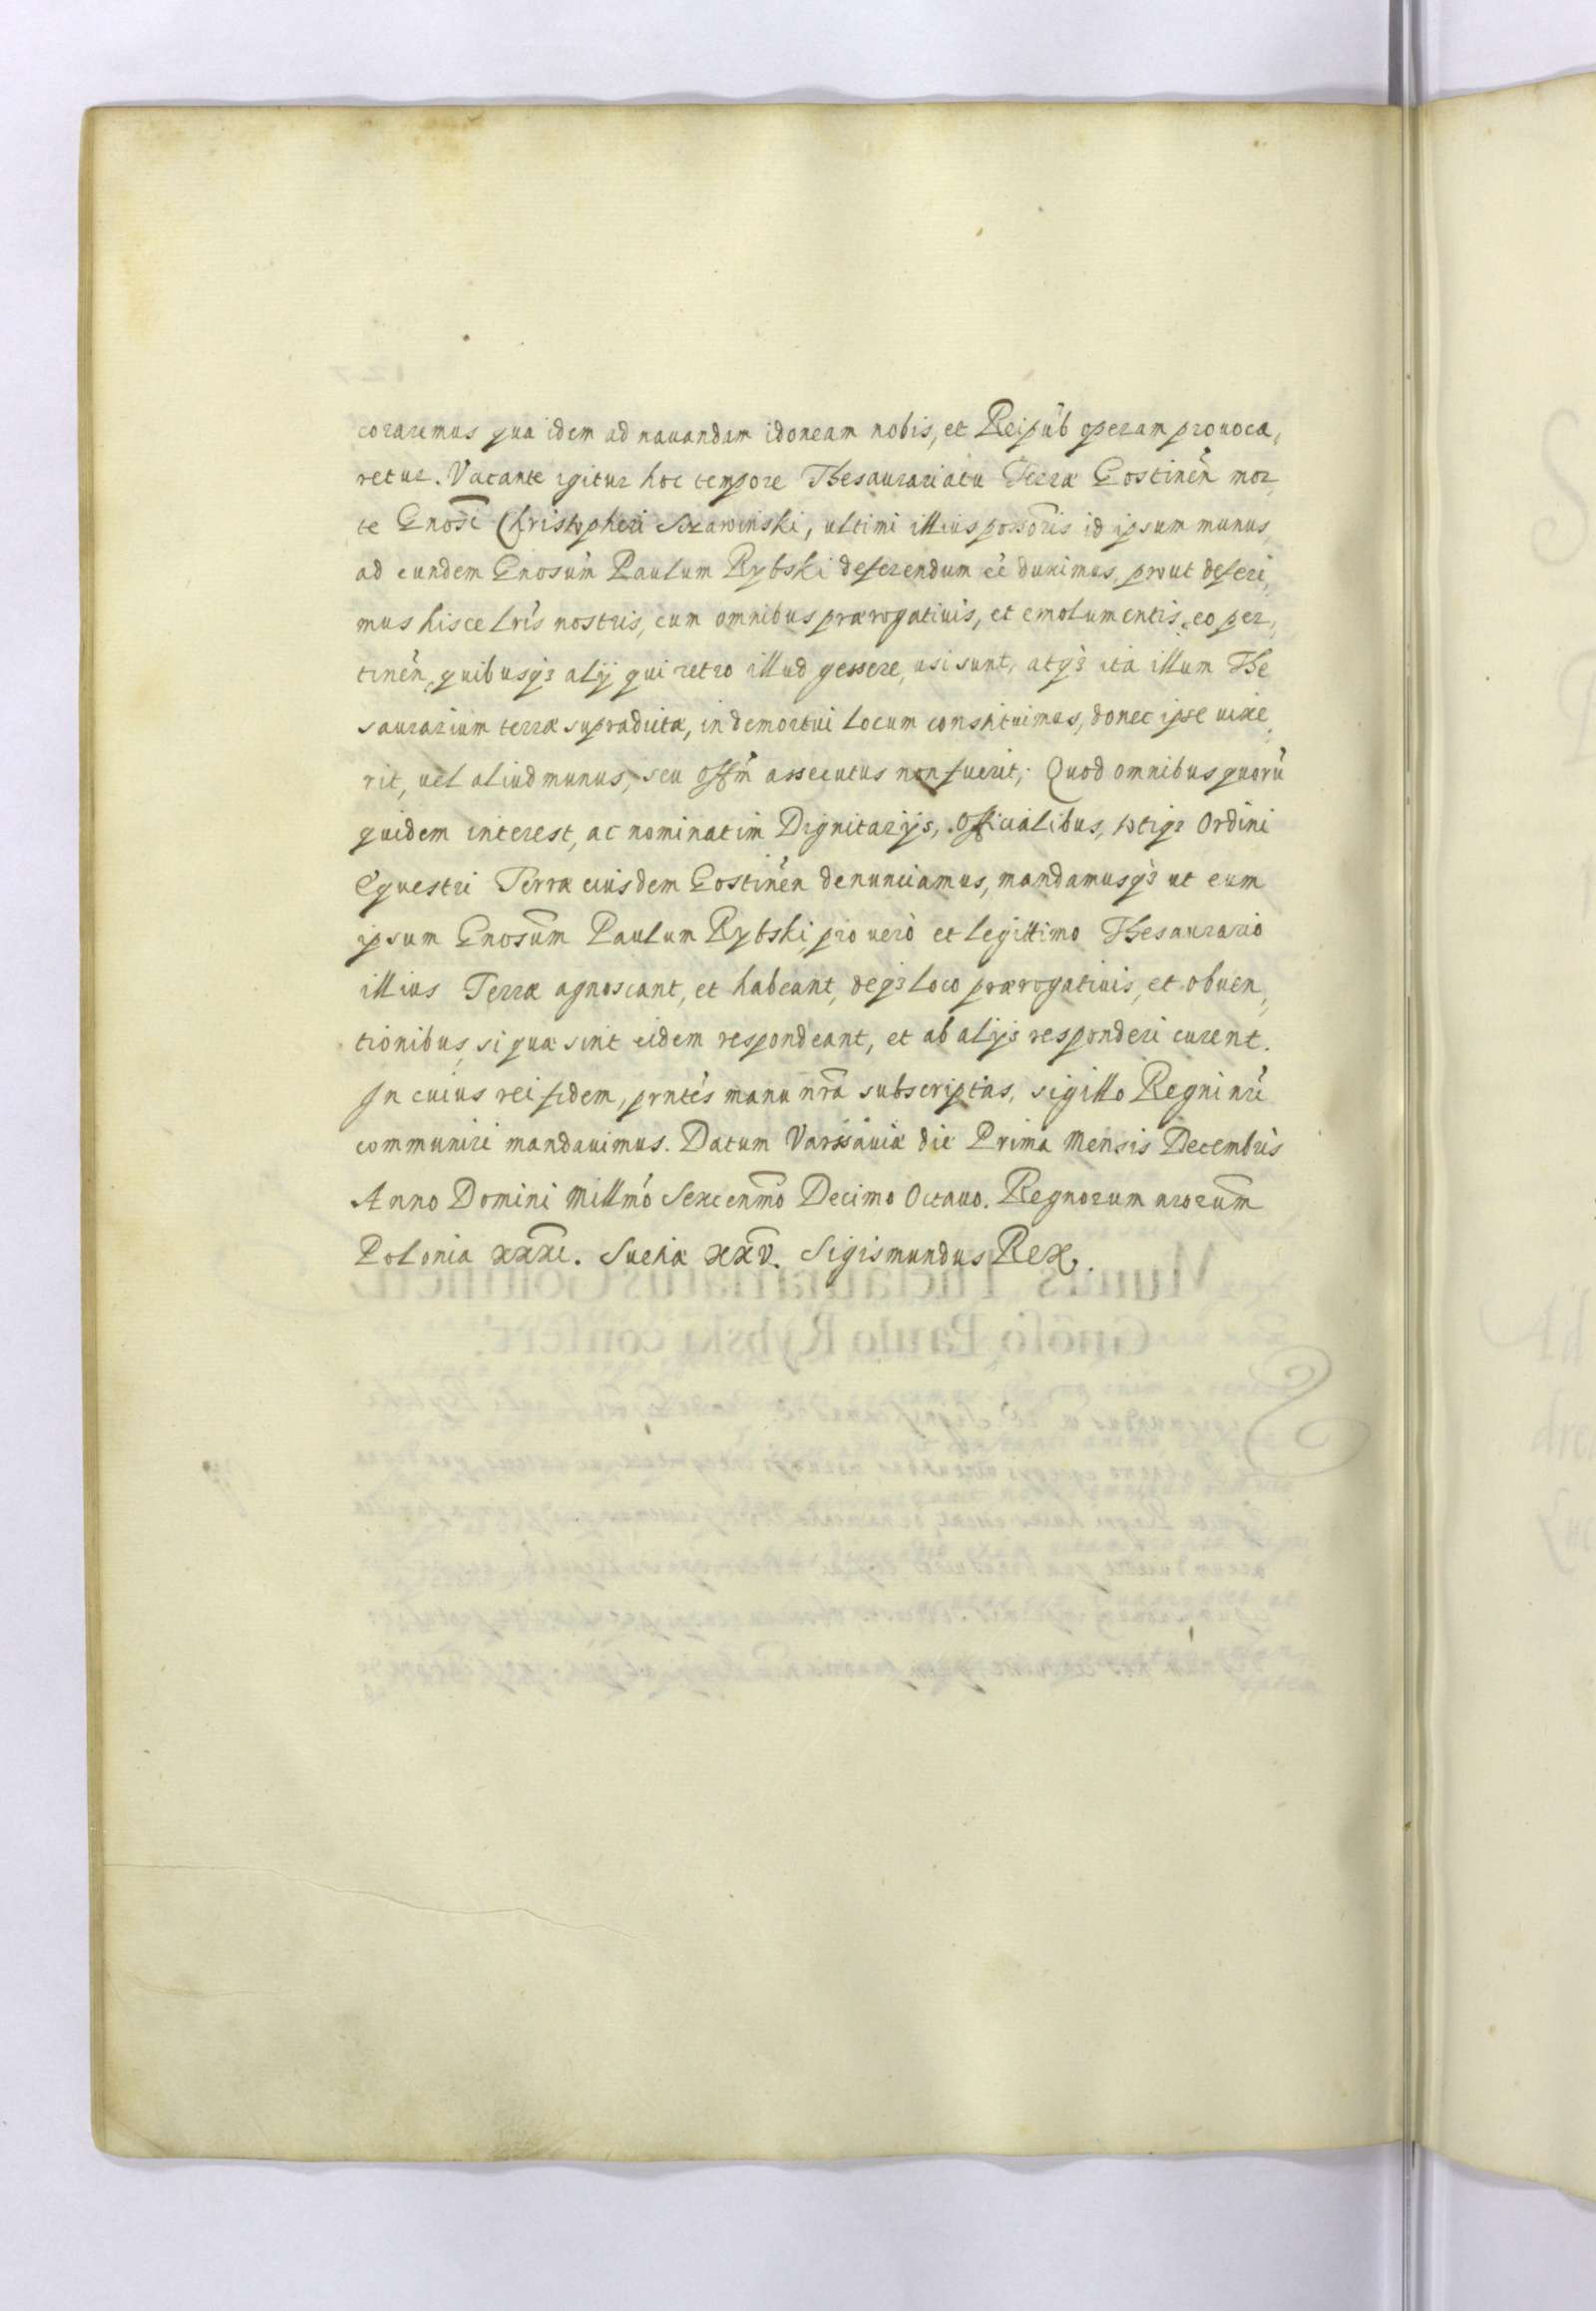 coraremus qua idem ad nauandam idoneam nobis, et Reipub operam prouoca,
retur. Vacante igitur hoc tempore Thesaurariatu Terræ Gostinen̄ mor,
te Gnosi Christopheri Szarwinski, ultimi illius possoris id ipsum munus,
ad eundem Gnosum Paulum Rybski deferendum eē duximus, prout deferi,
mus hisce Lrīs nostris, cum omnibus prærogatiuis, et emolumentis, eo per,
tinen̄, quibusqȝ alij qui retro illud gessere, usi sunt, atqȝ ita illum The
saurarium terræ supradictæ, in demortui locum constituimus, donec ipse uixe,
rit, uel aliud munus, seu Offm̄ assecutus non fuerit; Quod omnibus quorū
quidem interest, ac nominatim Dignitarijs, Officialibus, totiqȝ Ordini
Equestri Terræ eiusdem Gostinen̄ denunciamus, mandamusqȝ ut eum
ipsum Gnosum̄ Paulum Rybski, pro uero et legittimo Thesaurario
illius Terræ agnoscant, et habeant, deqȝ loco prærogatiuis, et obuen,
tionibus, si quæ sint eidem respondeant, et ab alijs responderi curent.
In cuius rei fidem, prntēs manu nrā subscriptas, sigillo Regni nrī
communiri mandauimus. Datum Varssauiæ die Prima Mensis Decembris
Anno Domini Millmō Sexcenmō Decimo Octauo. Regnorum nrorum̄
Poloniæ xxxi. Sueciæ xxv. Sigismundus Rex.